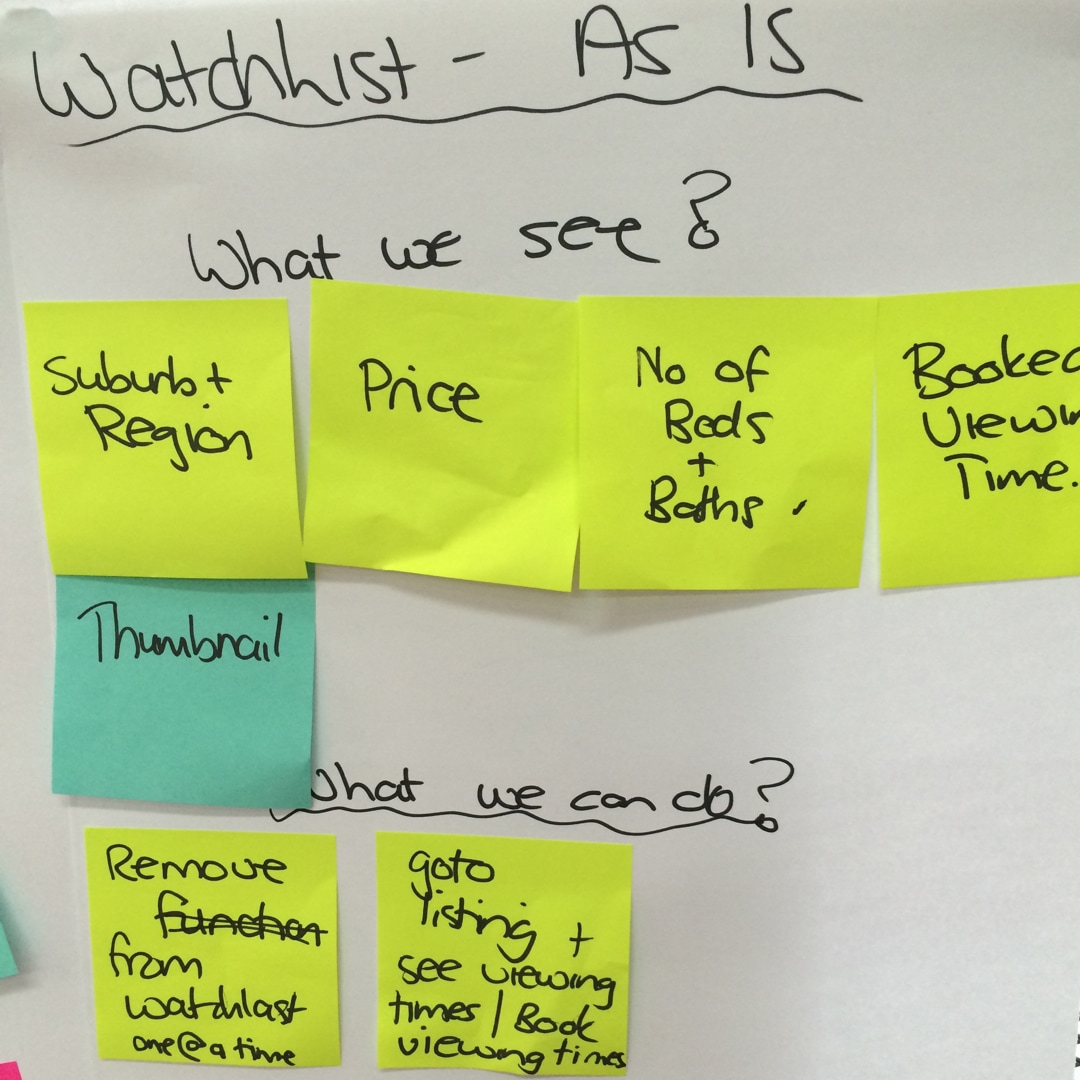 Watchlist - As Is
What we see?
Suburb +
Region
Price
No of
Beds
+
Baths
Booked
Viewin
Time.
Thumbnail
What we can do?
Remove
function
from
watchlast
one@a time
goto
listing +
see viewing
times / Book
viewing times